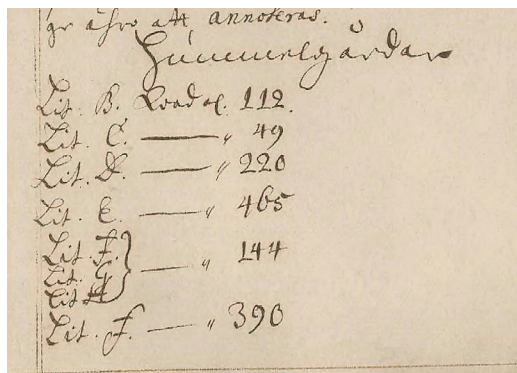 gr ähro att annoteras.
Hummelgårdar
Lit. B. Quad al. 112.
Lit. C. — " 49
Lit. D. — " 220
Lit. E. — " 465
Lit. F.
Lit. G. } — " 144
Lit H
Lit. J. — " 390